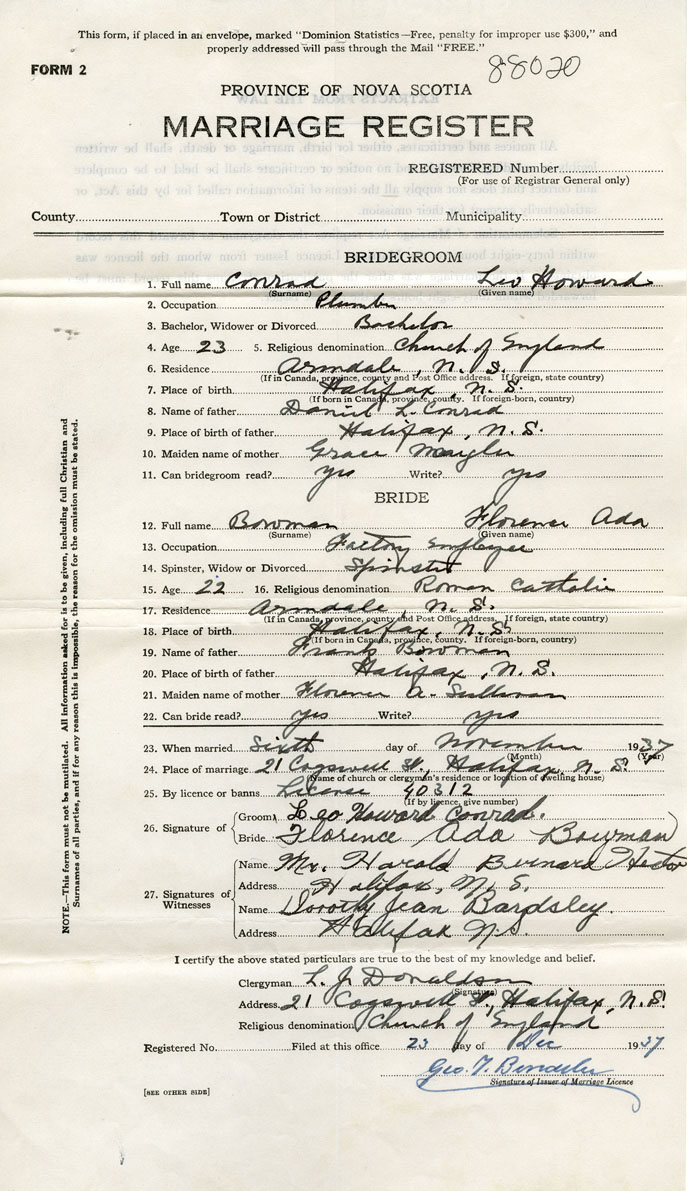 This form, if placed in an envelope, marked "Dominion Statistics—Free, penalty for improper use $300," and
properly addressed will pass through the Mail "FREE."
FORM 2
88020
PROVINCE OF NOVA SCOTIA
MARRIAGE REGISTER
REGISTERED Number
(For use of Registrar General only)
County Town or District Municipality
BRIDEGROOM
1. Full name Conrad Leo Howard
(Surname) (Given name)
2. Occupation Plumber
3. Bachelor, Widower or Divorced Bachelor
4. Age 23 5. Religious denomination Church of England
6. Residence Armdale, N. S.
(If in Canada, province, county and Post Office address. If foreign, state country)
7. Place of birth Halifax, N. S.
(If born in Canada, province, county. If foreign-born, country)
8. Name of father Daniel L. Conrad
9. Place of birth of father Halifax, N. S.
10. Maiden name of mother Grace
11. Can bridegroom read? yes Write? yes
BRIDE
12. Full name Bowman Florence Ada
(Surname) (Given name)
13. Occupation Factory Employee
14. Spinster, Widow or Divorced Spinster
15. Age 22 16. Religious denomination Roman Catholic
17. Residence Armdale, N. S.
(If in Canada, province, county and Post Office address. If foreign, state country)
18. Place of birth Halifax, N. S.
(If born in Canada, province, county. If foreign-born, country)
19. Name of father Frank Bowman
20. Place of birth of father Halifax, N. S.
21. Maiden name of mother Florence A. Sullivan
22. Can bride read? yes Write? yes
23. When married Sixth day of November 1937
(Month) (Year)
24. Place of marriage 21 Cogswell St., Halifax, N. S.
(Name of church or clergyman's residence or location of dwelling house)
25. By licence or banns License 40312
(If by licence, give number)
26. Signature of
Groom Leo Howard Conrad.
Bride Florence Ada Bowman
27. Signatures of Witnesses
Name Mr. Harold Bernard Hector
Address Halifax, N. S.
Name Dorothy Jean Bardsley.
Address Halifax N.S.
I certify the above stated particulars are true to the best of my knowledge and belief.
Clergyman L. J. Donaldson
(Signature)
Address 21 Cogswell St., Halifax, N. S.
Religious denomination Church of England
Registered No. Filed at this office 23 day of Dec 1937
Geo. T.
Signature of Issuer of Marriage Licence
[SEE OTHER SIDE]
NOTE.—This form must not be mutilated. All information asked for is to be given, including full Christian and
Surnames of all parties, and if for any reason this is impossible, the reason for the omission must be stated.